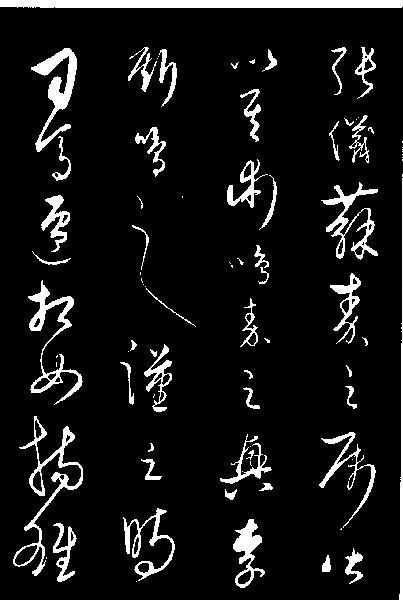 張儀蘇秦之屬皆
以其術鳴秦之興李
斯鳴之漢之時
司馬遷相如揚雄